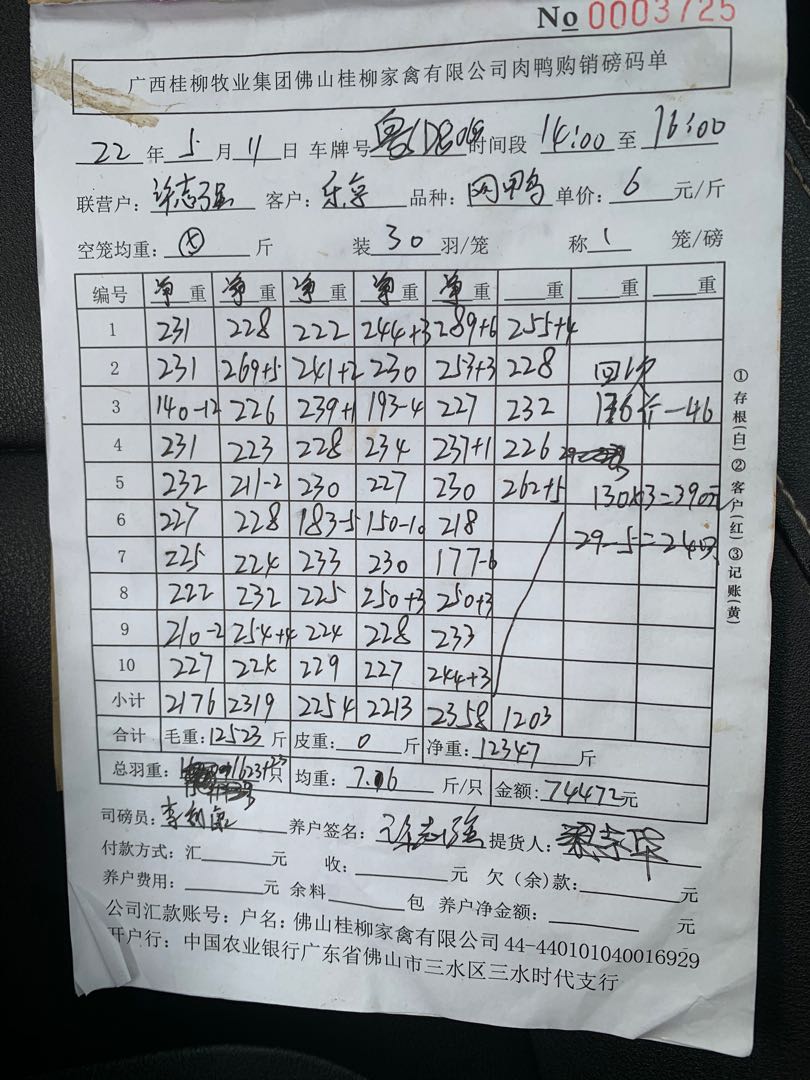 No 0003725
广西桂柳牧业集团佛山桂柳家禽有限公司肉鸭购销磅码单
22 年 5 月 11 日 车牌号 粤 时间段 14:00 至 16:00
联营户: 许志强 客户: 乐亨 品种: 网甲鸟 单价: 6 元/斤
空笼均重: 斤 装 30 羽/笼 称 1 笼/磅
编号 净重 净重 净重 净重 净重 重 重 重
1 231 228 222 244+3 289+6 255+4
2 231 269+5 241+2 230 253+3 228 回
3 140-12 226 239+1 193-4 227 232 176斤-46
4 231 223 228 234 237+1 226
5 232 211-2 230 227 230 262+5 130×3=390元
6 227 228 183-5 150-10 218 29-5=24只
7 225 224 233 230 177-6
8 222 232 225 250+3 250+3
9 210-2 254+4 224 228 233
10 227 224 229 227 244+3
小计 2176 2319 2254 2213 2358 1203
合计 毛重: 12523 斤 皮重: 0 斤 净重: 12347 斤
总羽重: 1623+23 只 均重: 7.16 斤/只 金额: 74472 元
司磅员: 养户签名: 许志强 提货人:
付款方式: 汇 元 收: 元 欠(余)款: 元
养户费用: 元 余料 包 养户净金额: 元
公司汇款账号: 户名: 佛山桂柳家禽有限公司 44-440101040016929
开户行: 中国农业银行广东省佛山市三水区三水时代支行
①存根(白)②客户(红)③记账(黄)